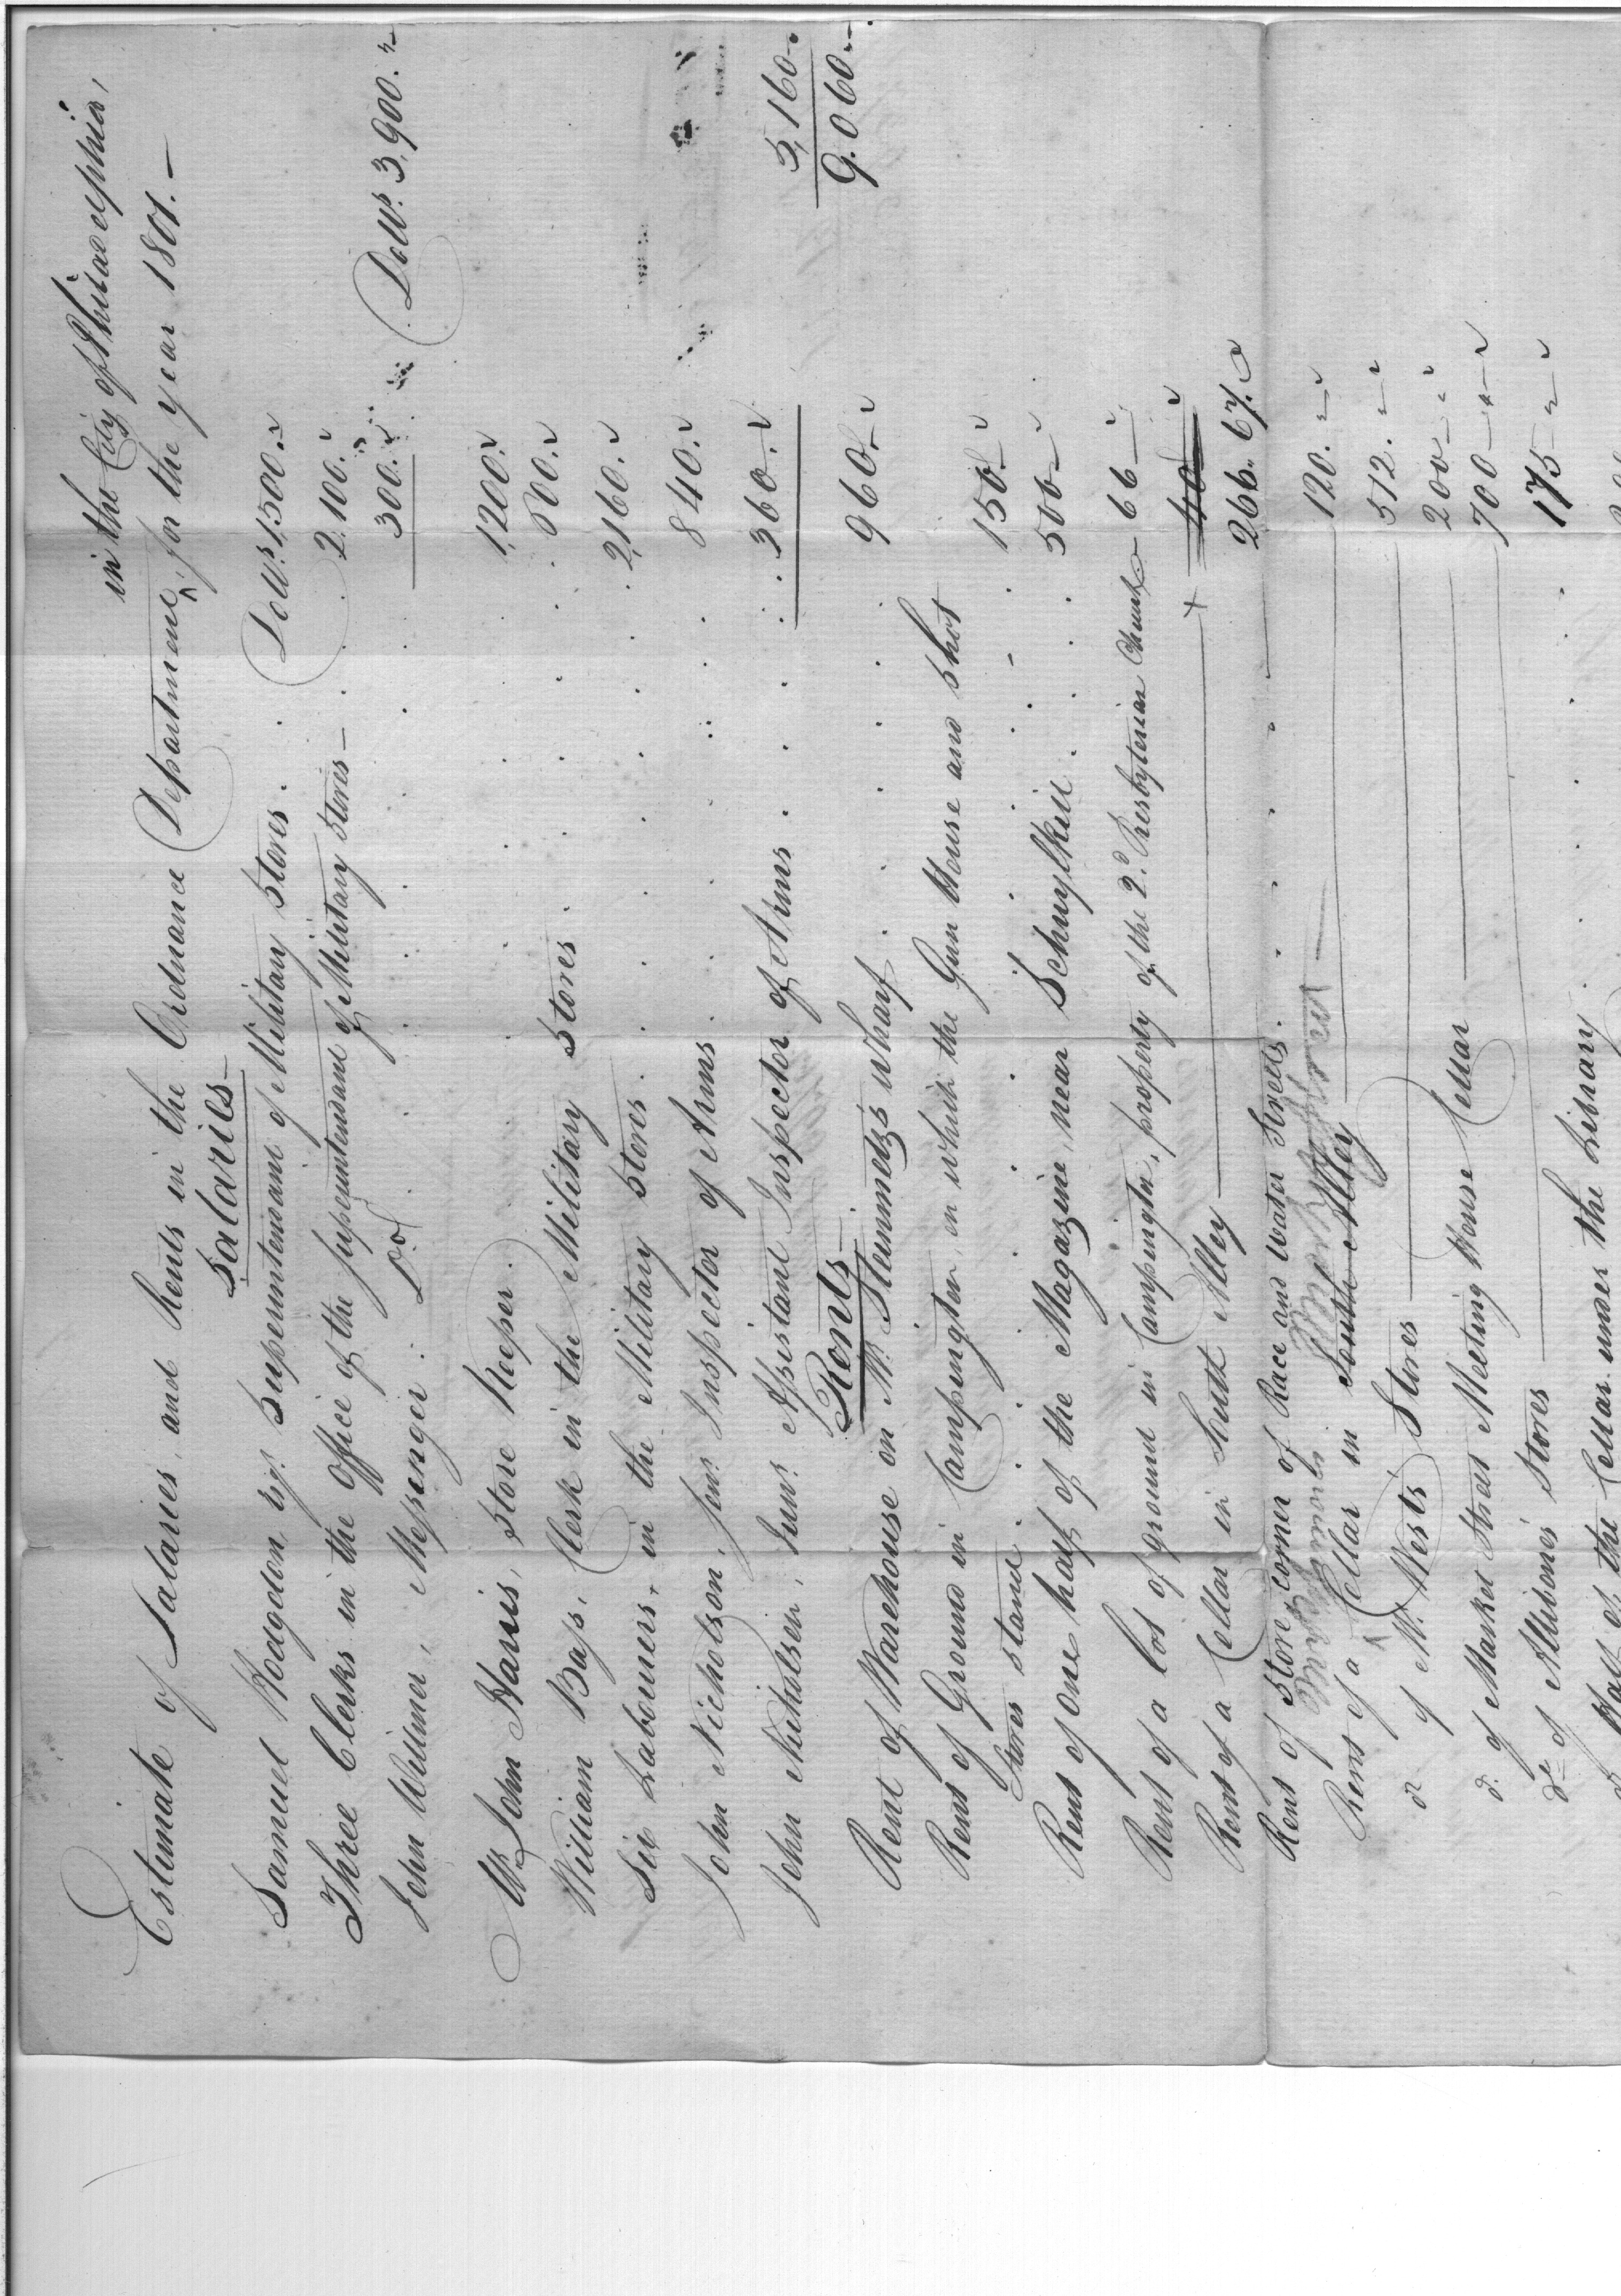 in the City of Philadelphia,
Estimate of Salaries, and Rents in the Ordnance Department ^ for the year 1801.—
Salaries—
Samuel Hodgdon Esqr. Superintendant of Military Stores . . Dolls. 1,500.
Three Clerks in the Office of the Superintendant of Military Stores — . . 2,100.
John Willmer, Messenger. Do. . . . . . 300. Dolls. 3,900.
Mr. John Harris, Store Keeper . . . . 1,200.
William Bass, Clerk in the Military Stores . . . . 600.
Six Labourers, in the Military Stores . . . . 2,160.
John Nicholson, Senr. Inspector of Arms . . . . 840.
John Nicholson, Junr. Assistant Inspector of Arms . . . . 360. 5,160.
9.060.
Rents—
Rent of Warehouse on Mr. Stemmetz's wharf . . . . 960.
Rent of Ground in Campington, on which the Gun House and Shot
Stores stand . . . . 150.
Rent of one half of the Magazine, near Schuylkill . . . 500
Rent of a lot of ground in Campington, property of the 2d. Presbyterian Church 66
Rent of a Cellar in South Alley + 40
Rent of Store, corner of Race and Water Streets . . . . 266.67.
Rent of a ^ Cellar in South Alley 120.
do of Mr. West's Stores 512.
200
do. of Market Street Meeting House Cellar 700
do of Allibone's Stores 175
Half of the Cellar under the Library . . . .